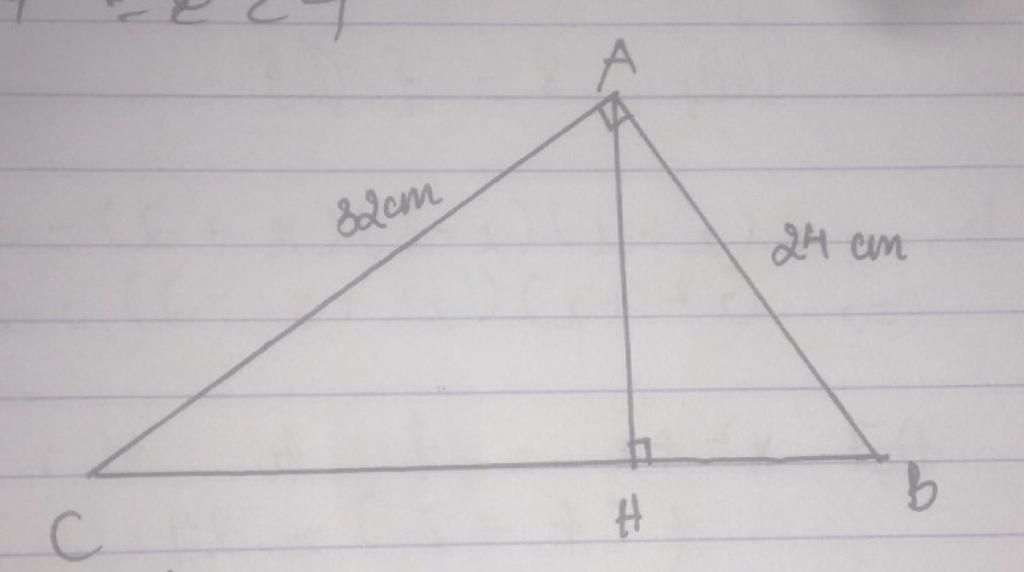 A
32cm
24 cm
C
H
B